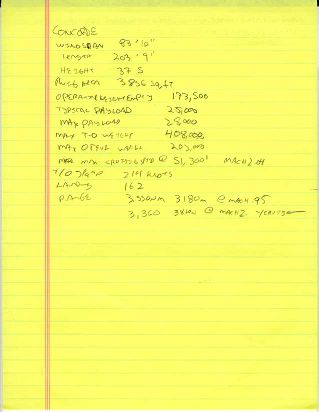 CONCORDE
WINGSPAN 83'10"
LENGTH 203'9"
HEIGHT 37 5
WING AREA 3,856 sq.ft
OPERATING WEIGHT EMPTY 173,500
TYPICAL PAYLOAD 25,000
MAX PAYLOAD 28000
MAX T-O WEIGHT 408,000
MAX 203,000
MAX @ 51,300' MACH 2.04
T/O
LANDING 162
RANGE 3,550 NM 3180 @ MACH .95
3,360 @ MACH 2